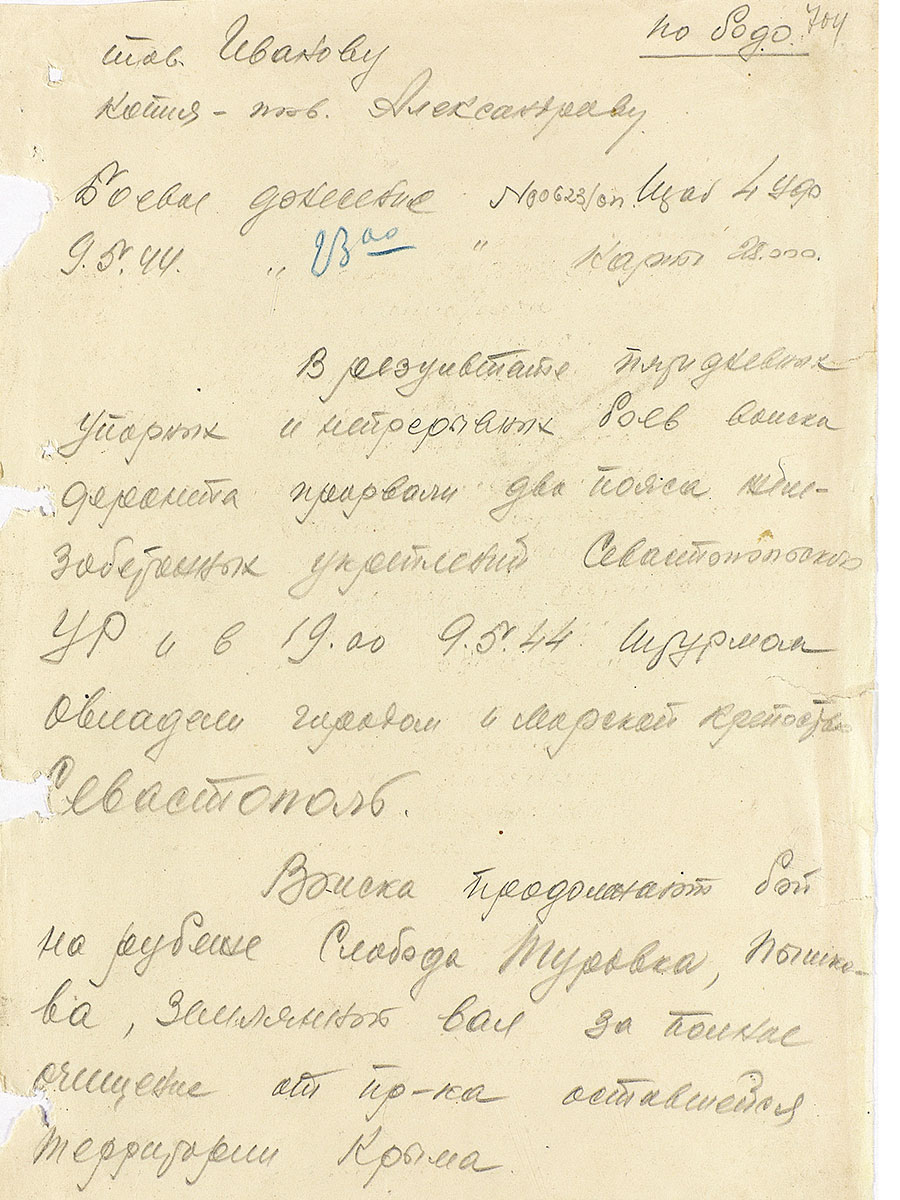 по бодо. 704
тов. Иванову
копия - тов. Александрову
Боевое донесение №00623/оп. Штаб 4 Уф
9.5.44. " 23 00 " Карты
В результате пятидневных
упорных и непрерывных боев войска
фронта прорвали два пояса желе-
зобетонных укреплений Севастопольского
УР и в 19.00 9.5.44 штурмом
овладели городом и морской крепостью
Севастополь.
Войска продолжают бой
на рубеже Слобода Туровка, Пышко-
ва, Земляной вал за полное
очищение от пр-ка оставшейся
территории Крыма.